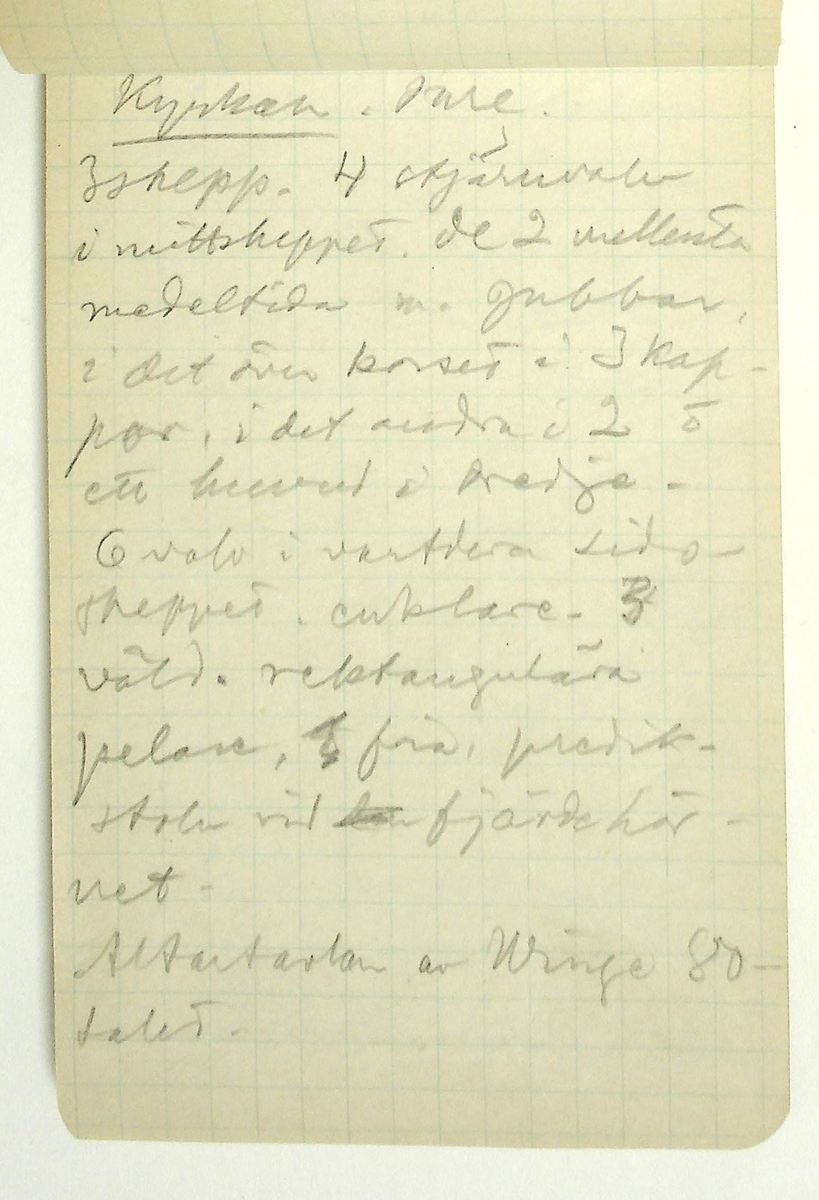 Kyrkan. Inre.
3skepp. 4 stjärnvalv
i mittskeppet. de 2 mellersta
medeltida m. gubbar,
i det över korset i 3 kap-
por, i det andra i 2 o
ett huvud i tredje.
6 valv i vartdera sido-
skeppet. enklare. 3
väld. rektangulära
pelare, fria, predik-
stoln vid fjärde hör-
net.
Altartavlan av Winge 80-
talet.